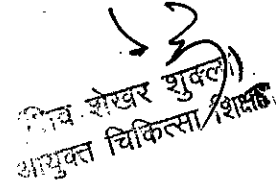 शिव शेखर शुक्ला
आयुक्त चिकित्सा शिक्षा